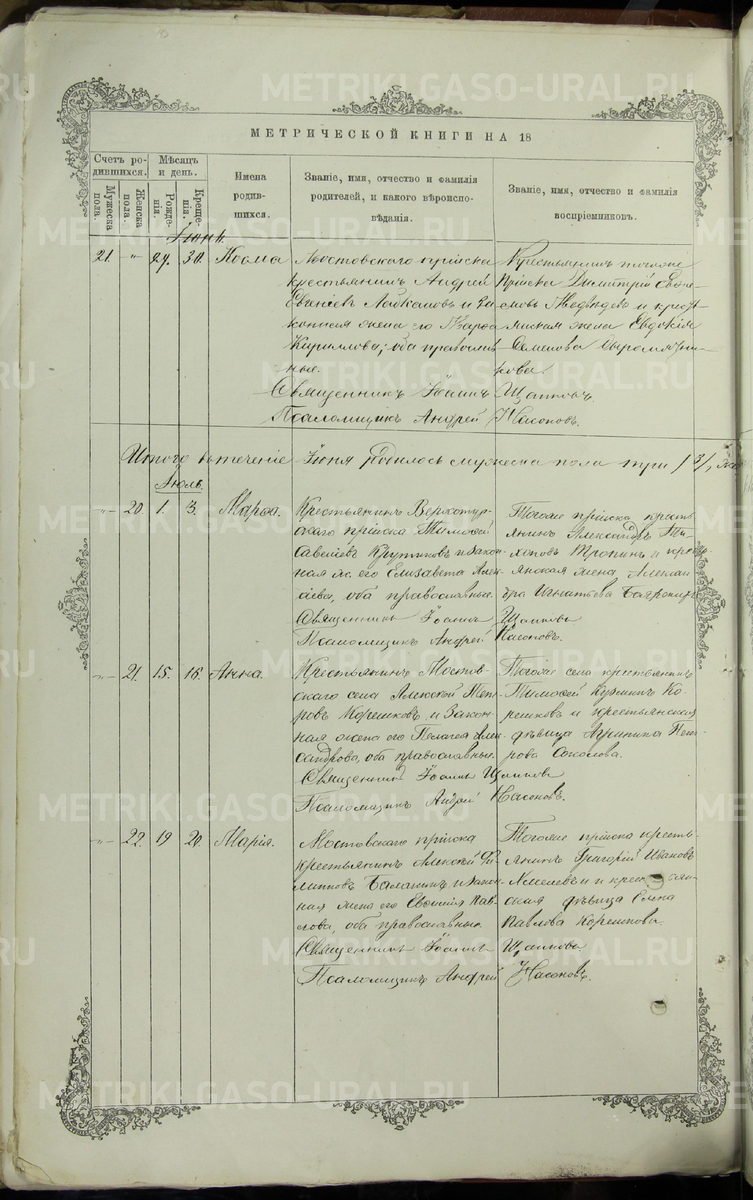 МЕТРИЧЕСКОЙ КНИГИ НА 18
Счетъ родившихся.
Мѣсяцъ и день.
Мужеска пола.
Женска пола.
Рожденія.
Крещенія.
Имена родившихся.
Званіе, имя, отчество и фамилія родителей, и какого вѣроисповѣданія.
Званіе, имя, отчество и фамилія воспріемниковъ.
Іюнь
21. " 29. 30. Косма
Мостовскаго пріиска
крестьянинъ Андрей
и за-
конная жена его
Кириллова, оба православ-
ные.
Священникъ Іоаннъ
Псаломщикъ Андрей
Крестьянинъ тогоже
пріиска Димитрій
Медвѣдевъ и кресть-
янская жена Евдокія
Семенова
Щаповъ
Насоновъ.
Итого въ теченіе Іюня родилось мужеска пола три /3/,
Іюль
" 20. 1. 3. Марѳа.
Крестьянинъ Верхотур-
скаго пріиска Тимоѳей
Савельевъ Крутиковъ и закон-
ная ж. его Елизавета
оба православные.
Священникъ Іоаннъ
Псаломщикъ Андрей
Тогоже пріиска кресть-
янинъ Александръ
и кресть-
янская жена Алексан-
дра Игнатьева
Щаповъ
Насоновъ.
" 21. 15. 16. Анна.
Крестьянинъ Мостов-
скаго села Алексѣй Пет-
ровъ Корешковъ и закон-
ная жена его Пелагея Алек-
сандрова, оба православные.
Священникъ Іоаннъ Щаповъ
Псаломщикъ Андрей Насоновъ.
Тогоже села крестьянинъ
Тимоѳей Кузминъ Ко-
решковъ и крестьянская
дѣвица Агрипина Пет-
рова Соколова.
" 22. 19 20. Марія.
Мостовскаго пріиска
крестьянинъ Алексѣй Фи-
липповъ и закон-
ная жена его Евѳимія Пав-
лова, оба православные.
Священникъ Іоаннъ
Псаломщикъ Андрей
Тогоже пріиска кресть-
янинъ Григорій Ивановъ
и крестьян-
ская дѣвица Елена
Павлова Корешкова.
Щаповъ
Насоновъ.
METRIKI.GASO-URAL.RU